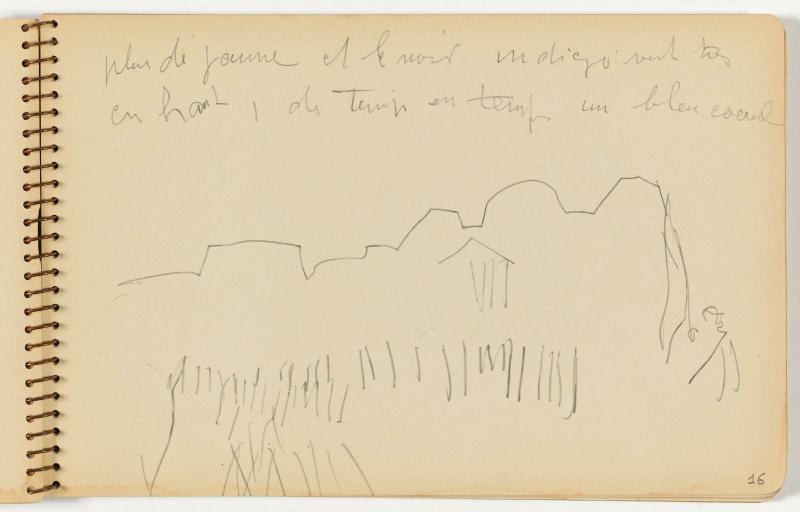 plus de jaune et le noir indigo vert très
en haut, de temps en temps un bleu coerul
16